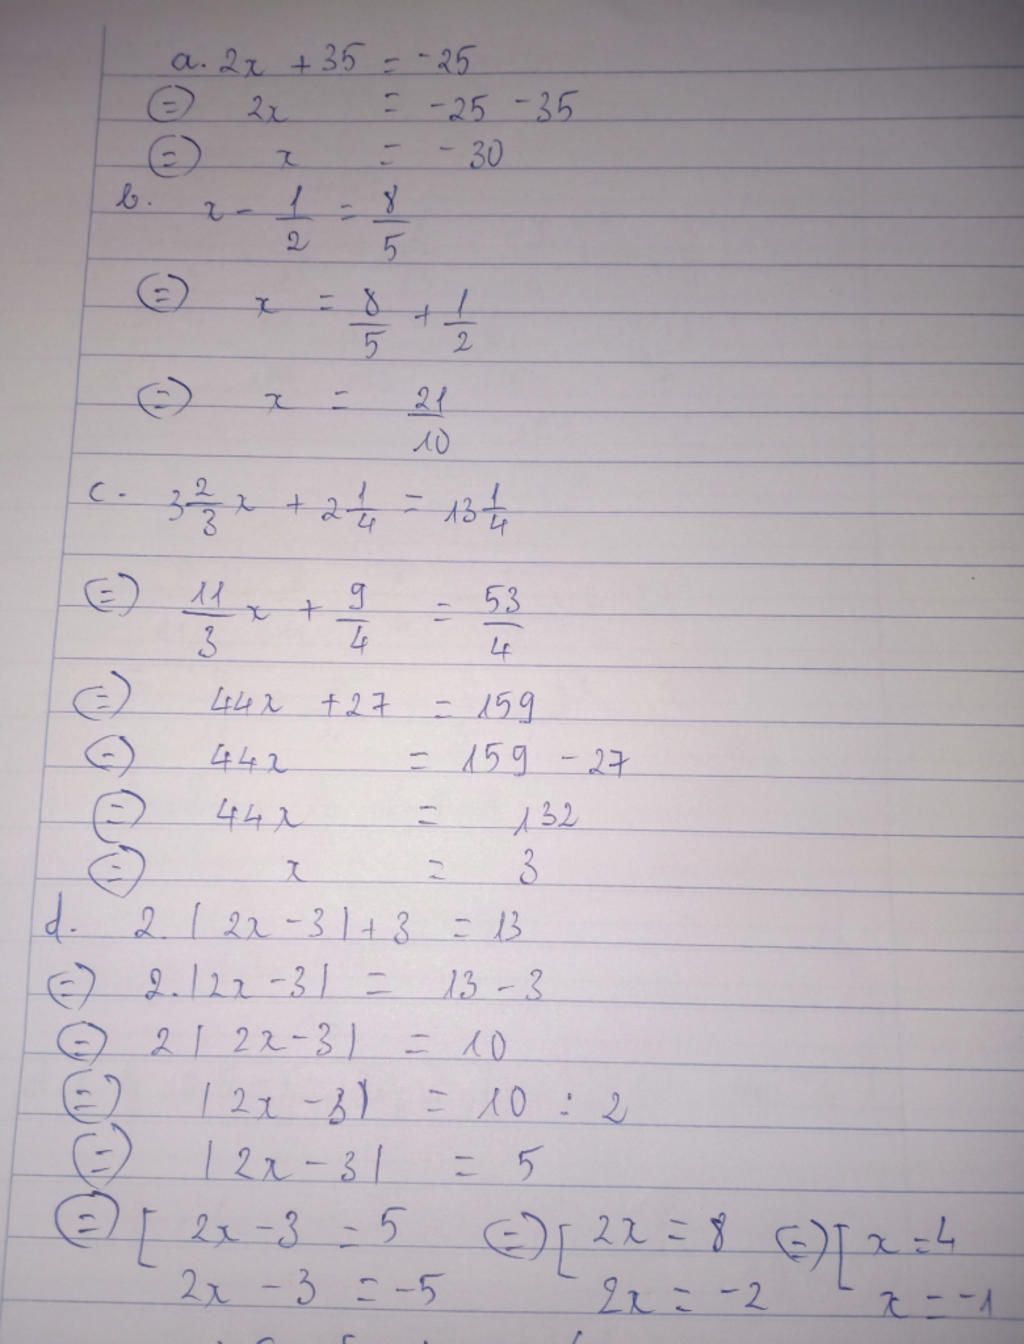 a. 2x + 35 = -25
⇔ 2x = -25 - 35
⇔ x = -30
b. x - 1/2 = 8/5
⇔ x = 8/5 + 1/2
⇔ x = 21/10
c. 3 2/3 x + 2 1/4 = 13 1/4
⇔ 11/3 x + 9/4 = 53/4
⇔ 44x + 27 = 159
⇔ 44x = 159 - 27
⇔ 44x = 132
⇔ x = 3
d. 2. |2x - 3| + 3 = 13
⇔ 2. |2x - 3| = 13 - 3
⇔ 2 |2x - 3| = 10
⇔ |2x - 3| = 10 : 2
⇔ |2x - 3| = 5
⇔ [ 2x - 3 = 5 ⇔ [ 2x = 8 ⇔ [ x = 4
2x - 3 = -5 2x = -2 x = -1